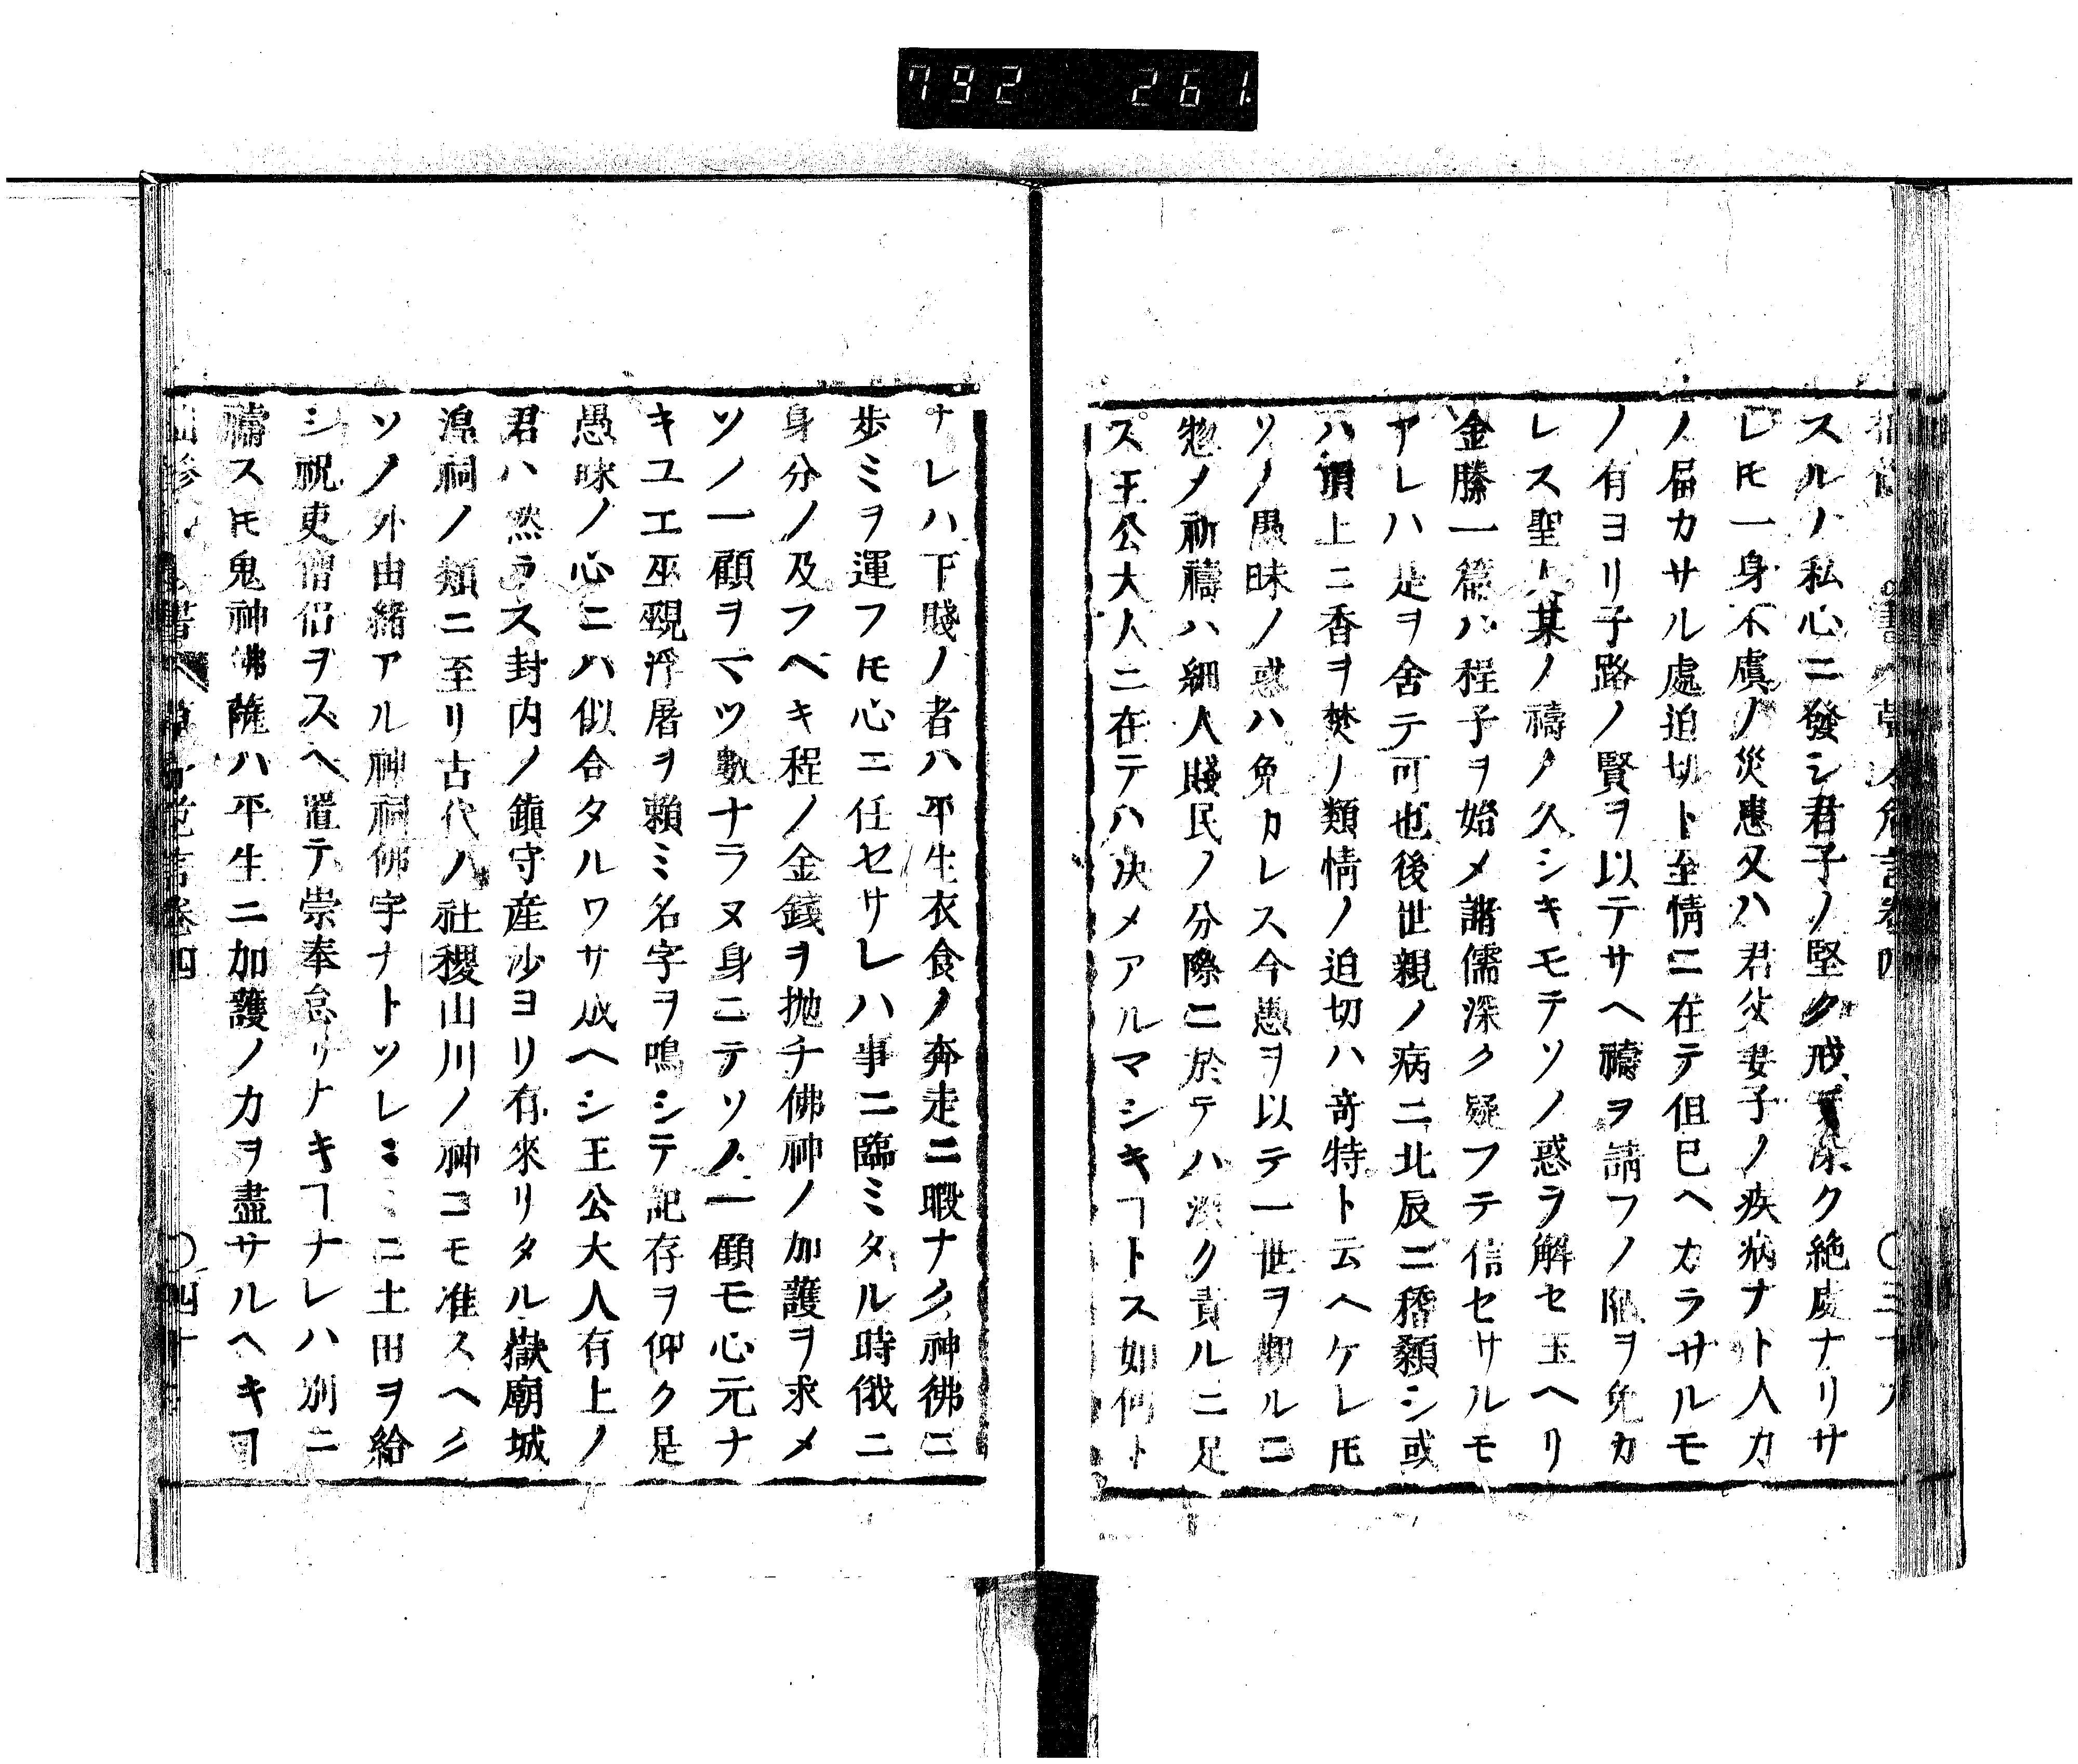 792 261
スルノ私心ニ發シ君子ノ堅ク戒メ深ク絶處ナリサ
レ𪜈一身不虞ノ災患又ハ君父妻子ノ疾病ナト人力
ノ届カサル處迫切ト至情ニ在テ但已ヘカラサルモ
ノ有ヨリ子路ノ賢ヲ以テサヘ禱ヲ請フノ陋ヲ免カ
レス聖人某ノ禱ノ久シキモテソノ惑ヲ解セ玉ヘリ
金縢一篇ハ程子ヲ始メ諸儒深ク疑フテ信セサルモ
アレハ是ヲ舍テ可也後世親ノ病ニ北辰ニ稽顙シ或
ハ頂上ニ香ヲ焚ノ類情ノ迫切ハ竒特ト云ヘケレ𪜈
ソノ愚昧ノ惑ハ免カレス今愚ヲ以テ一世ヲ概ルニ
惣メ祈禱ハ細人賤民ノ分際ニ於テハ深ク責ルニ足
ス王公大人ニ在テハ决メアルマシキヿトス如何ト
ナレハ下賤ノ者ハ平生衣食ノ奔走ニ暇ナク神佛ニ
歩ミヲ運フ𪜈心ニ任セサレハ事ニ臨ミタル時俄ニ
身分ノ及フヘキ程ノ金錢ヲ抛チ佛神ノ加護ヲ求メ
ソノ一顧ヲマツ數ナラヌ身ニテソノ一顧モ心元ナ
キユエ巫覡浮屠ヲ賴ミ名字ヲ鳴シテ記存ヲ仰ク是
愚昧ノ心ニハ似合タルワサ成ヘシ王公大人有上ノ
君ハ然ラス封内ノ鎮守産沙ヨリ有來リタル嶽廟城
湟祠ノ類ニ至リ古代ノ社稷山川ノ神コモ准スヘシ
ソノ外由緒アル神祠佛宇ナトソレミミニ土田ヲ給
シ祝吏僧侶ヲスヘ置テ崇奉怠リナキヿナレハ別ニ
禱ス𪜈鬼神佛薩ハ平生ニ加護ノ力ヲ盡サルヘキヿ